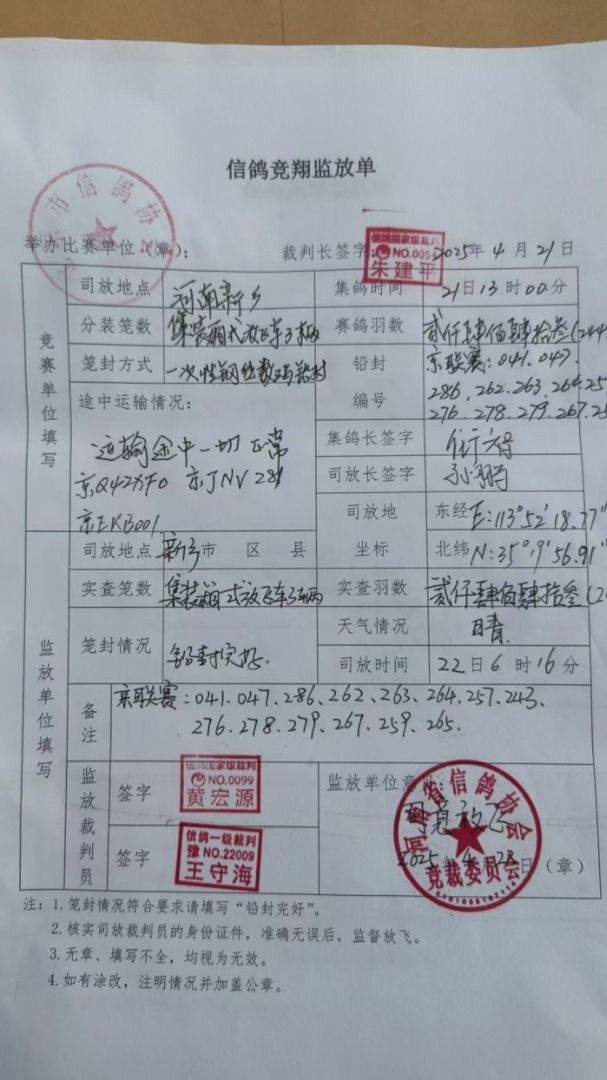 信鸽竞翔监放单
市信鸽协
举办比赛单位（章）：
裁判长签字：
信鸽国家级裁判
NO.0054
朱建平
2025年4月21日
竞赛单位填写
司放地点 河南新乡
集鸽时间 21日13时00分
分装笼数 集装箱式放飞车3辆
赛鸽羽数 贰仟肆佰肆拾叁(244
笼封方式 一次性钢丝数码铅封
铅封编号 京联赛:041.047.
286,262.263,264.25
276.278.279.267.25
途中运输情况：
运输途中一切正常
京JNV281
京EKB001
集鸽长签字
司放长签字 孙鹏
司放地坐标
东经 E:113°52′18.77″
北纬 N:35°19′56.91″
监放单位填写
司放地点 新乡市 区 县
实查笼数 集装箱式放飞车3辆
实查羽数 贰仟肆佰肆拾叁(2
笼封情况 铅封完好.
天气情况 晴
司放时间 22日6时16分
备注 京联赛:041.047.286、262、263、264.257.243、
276.278.279、267.259、265.
监放裁判员
签字
信鸽国家级裁判
NO.0099
黄宏源
签字
信鸽一级裁判
豫NO.22009
王守海
监放单位意见：
同意放飞
2025年4月22日（章）
河南省信鸽协会
竞裁委员会
注：1.笼封情况符合要求请填写“铅封完好”。
2.核实司放裁判员的身份证件，准确无误后，监督放飞。
3.无章、填写不全，均视为无效。
4.如有涂改，注明情况并加盖公章。